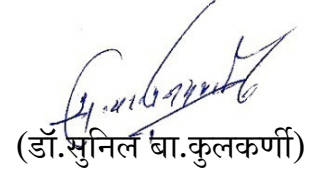 (डॉ.सुनिल बा.कुलकर्णी)